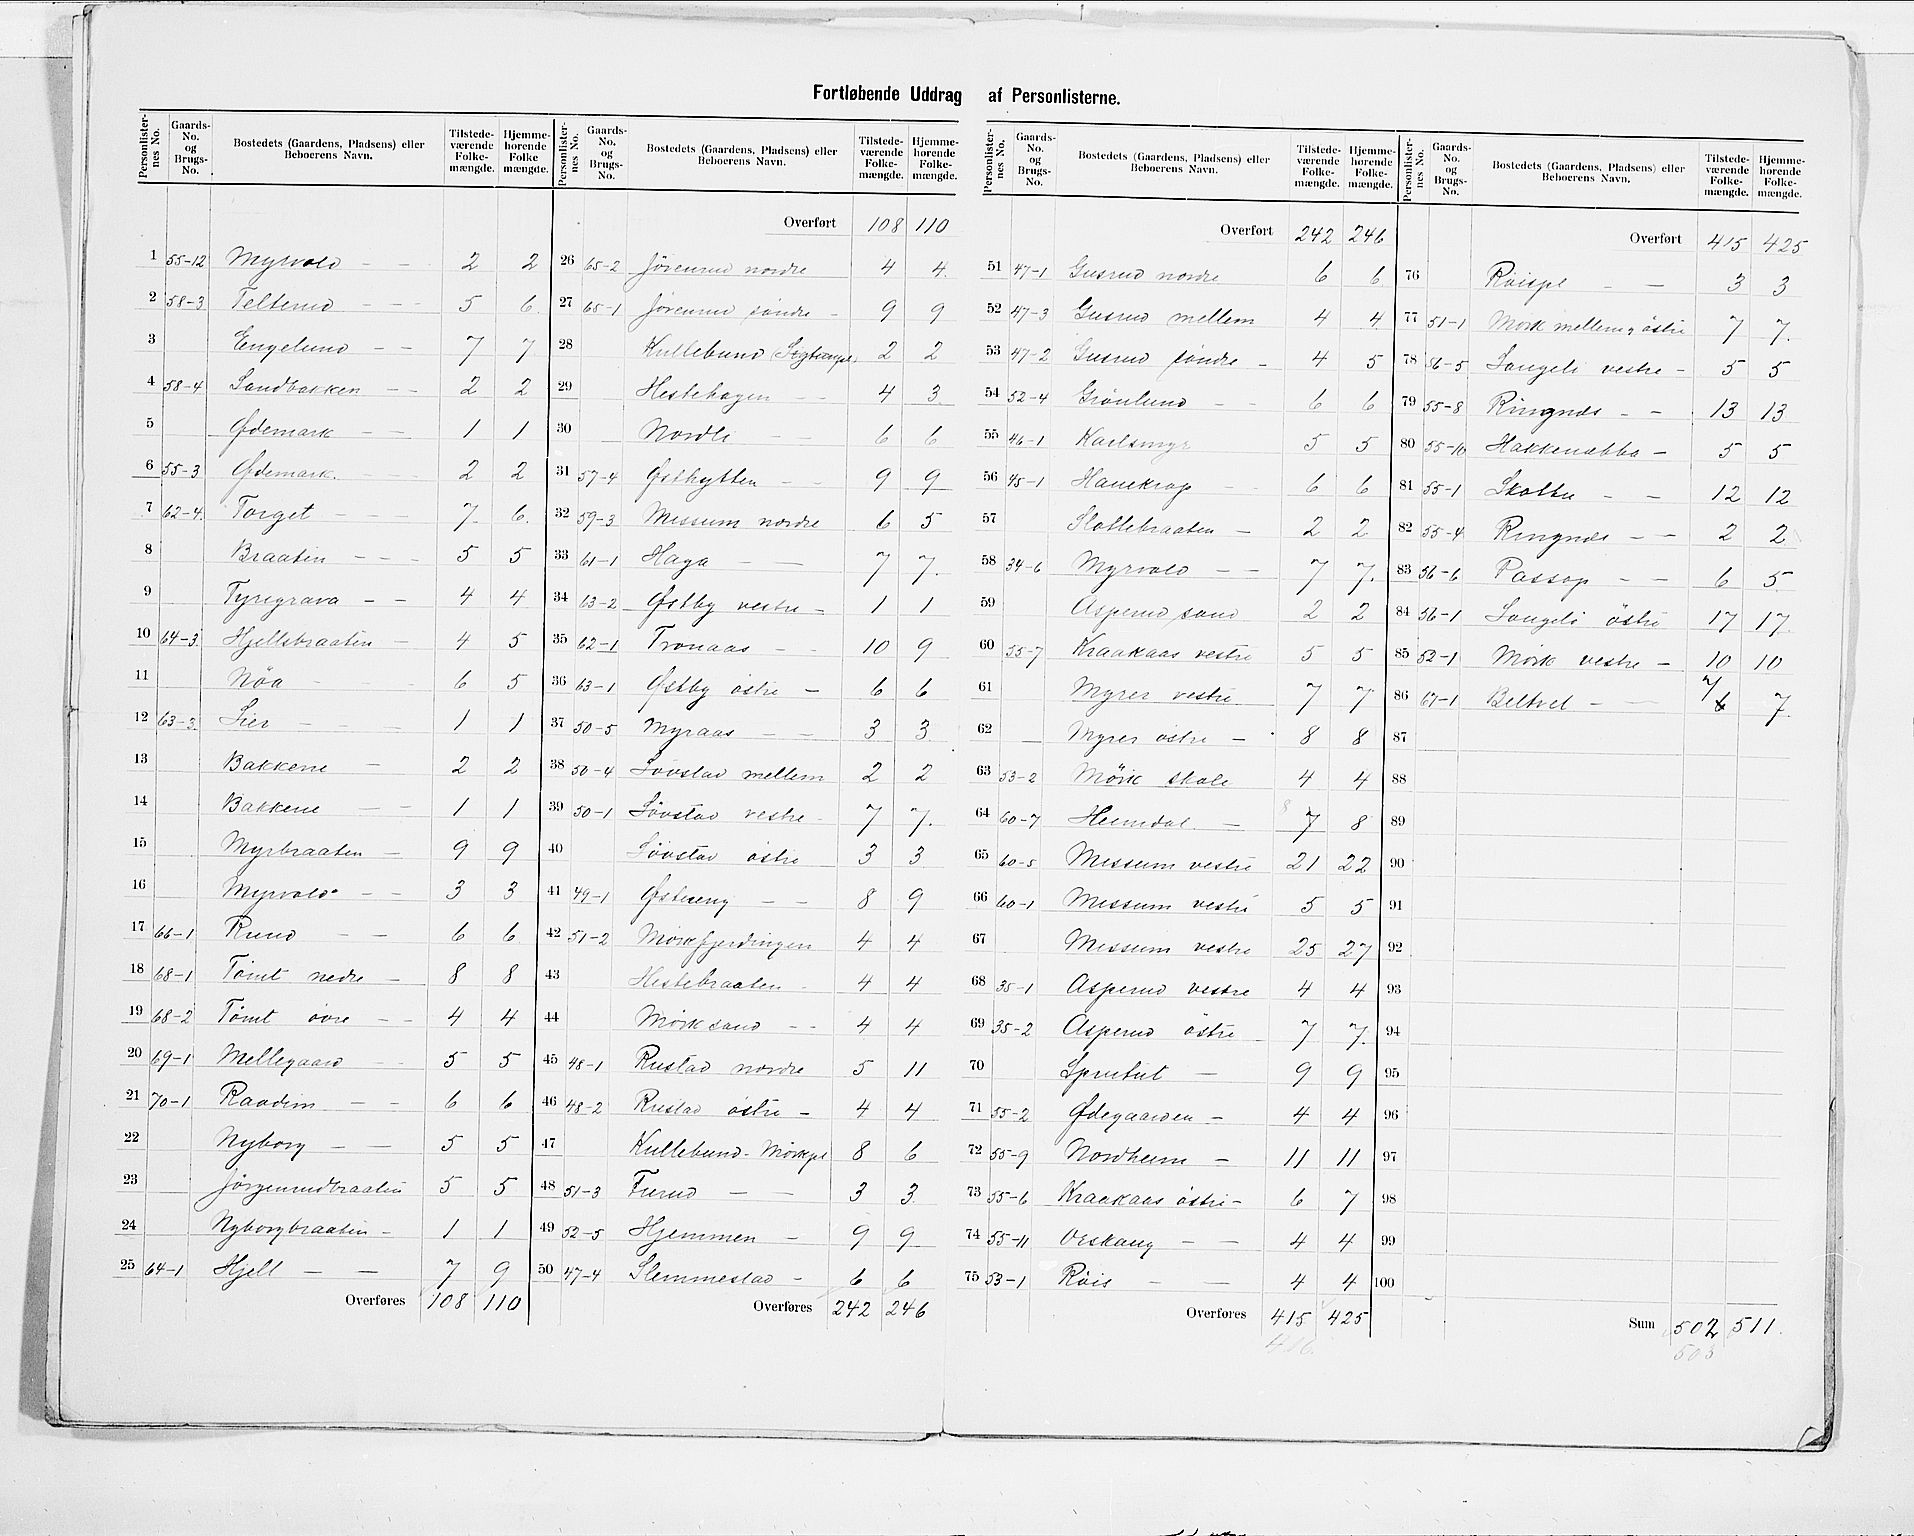 Fortløbende Uddrag af Personlisterne.
Personlister-nes No. | Gaards-No. og Brugs-No. | Bostedets (Gaardens, Pladsens) eller Beboerens Navn. | Tilstede-værende Folke-mængde. | Hjemme-hørende Folke mængde.
1 55-12 Myrvold 2 2
2 58-3 Telterud 5 6
3 Engelund 7 7
4 58-4 Sandbakken 2 2
5 Ødemark 1 1
6 55-3 Ødemark 2 2
7 62-4 Torget 7 6
8 Braatin 5 5
9 Tyrigrava 4 4
10 64-3 Hjellsbraatin 4 5
11 Nøa 6 5
12 63-3 Lier 1 1
13 Bakkene 2 2
14 Bakkene 1 1
15 Myrbraaten 9 9
16 Myrvold 3 3
17 66-1 Ruud 6 6
18 68-1 Tömt nedre 8 8
19 68-2 Tömt övre 4 4
20 69-1 Mellegaard 5 5
21 70-1 Raadim 6 6
22 Nyborg 5 5
23 Jörgenrudbraatin 5 5
24 Nyborgbraatin 1 1
25 64-1 Hjell 7 9
Overføres 108 110
Personlister-nes No. | Gaards-No. og Brugs-No. | Bostedets (Gaardens, Pladsens) eller Beboerens Navn. | Tilstede-værende Folke-mængde. | Hjemme-hørende Folke-mængde.
Overført 108 110
26 65-2 Jörenrud nordre 4 4
27 65-1 Jörenrud söndre 9 9
28 Kullebund 2 2
29 Hestehagen 4 3
30 Nordli 6 6
31 57-4 Østbytten 9 9
32 59-3 Messum nordre 6 5
33 61-1 Haga 7 7
34 63-2 Østby vestre 1 1
35 62-1 Tronaas 10 9
36 63-1 Østby östre 6 6
37 50-5 Myraas 3 3
38 50-4 Sövstad mellem 2 2
39 50-1 Sövstad vestre 7 7
40 Sövstad östre 3 3
41 49-1 Østereng 8 9
42 51-2 Mörkfjerdingen 4 4
43 Hestebraaten 4 4
44 Mörksand 4 4
45 48-1 Rustad nordre 5 11
46 48-2 Rustad östre 4 4
47 Kullebund-Mörkpl 8 6
48 51-3 Furud 3 3
49 52-5 Hjemmen 9 9
50 47-4 Slemmestad 6 6
Overføres 242 246
Personlister-nes No. | Gaards-No. og Brugs-No. | Bostedets (Gaardens, Pladsens) eller Beboerens Navn. | Tilstede-værende Folke-mængde. | Hjemme-hørende Folke-mængde.
Overført 242 246
51 47-1 Gusrud nordre 6 6
52 47-3 Gusrud mellem 4 4
53 47-2 Gusrud söndre 4 5
54 52-4 Grönlund 6 6
55 46-1 Karlsmyr 5 5
56 45-1 Hanekrop 6 6
57 Slottebraaten 2 2
58 34-6 Myrvold 7 7
59 Asperud sand 2 2
60 55-7 Kraakaas vestre 5 5
61 Myrer vestre 7 7
62 Myrer östre 8 8
63 53-2 Mörk skole 4 4
64 60-7 Heimdal 8 7 8
65 60-5 Messum vestre 21 22
66 60-1 Messum vestre 5 5
67 Messum vestre 25 27
68 35-1 Asperud vestre 4 4
69 35-2 Asperud östre 7 7
70 Sprutut 9 9
71 55-2 Ødegaarden 4 4
72 55-9 Nordheim 11 11
73 55-6 Kraakaas östre 6 7
74 55-11 4 4
75 53-1 Röis 4 4
Overføres 415 425
416
Personlister-nes No. | Gaards-No. og Brugs-No. | Bostedets (Gaardens, Pladsens) eller Beboerens Navn. | Tilstede-værende Folke-mængde. | Hjemme-hørende Folke-mængde.
Overført 415 425
76 Röispl 3 3
77 51-1 Mörk mellem og östre 7 7
78 56-5 Langeli vestre 5 5
79 55-8 Ringnds 13 13
80 55-10 Hakkenebba 5 5
81 55-1 Skottu 12 12
82 55-4 Ringnds 2 2
83 56-6 Passop 6 5
84 56-1 Langeli östre 17 17
85 52-1 Mörk vestre 10 10
86 67-1 Beltvet 7 6 7
87
88
89
90
91
92
93
94
95
96
97
98
99
100
Sum 502 511
503